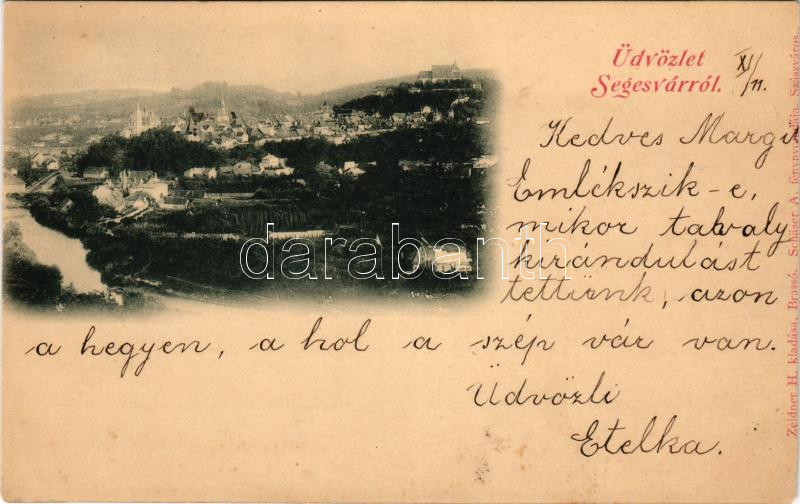 Üdvözlet
Segesvárról.
XI/11.
Kedves Margit
Emlékszik-e,
mikor tavaly
kirándulást
tettünk, azon
a hegyen, a hol a szép vár van.
Üdvözli
Etelka.
darabanth
Zeidner H. kiadása, Brassó. Schuser A. fénynyomdája, Szászváros.